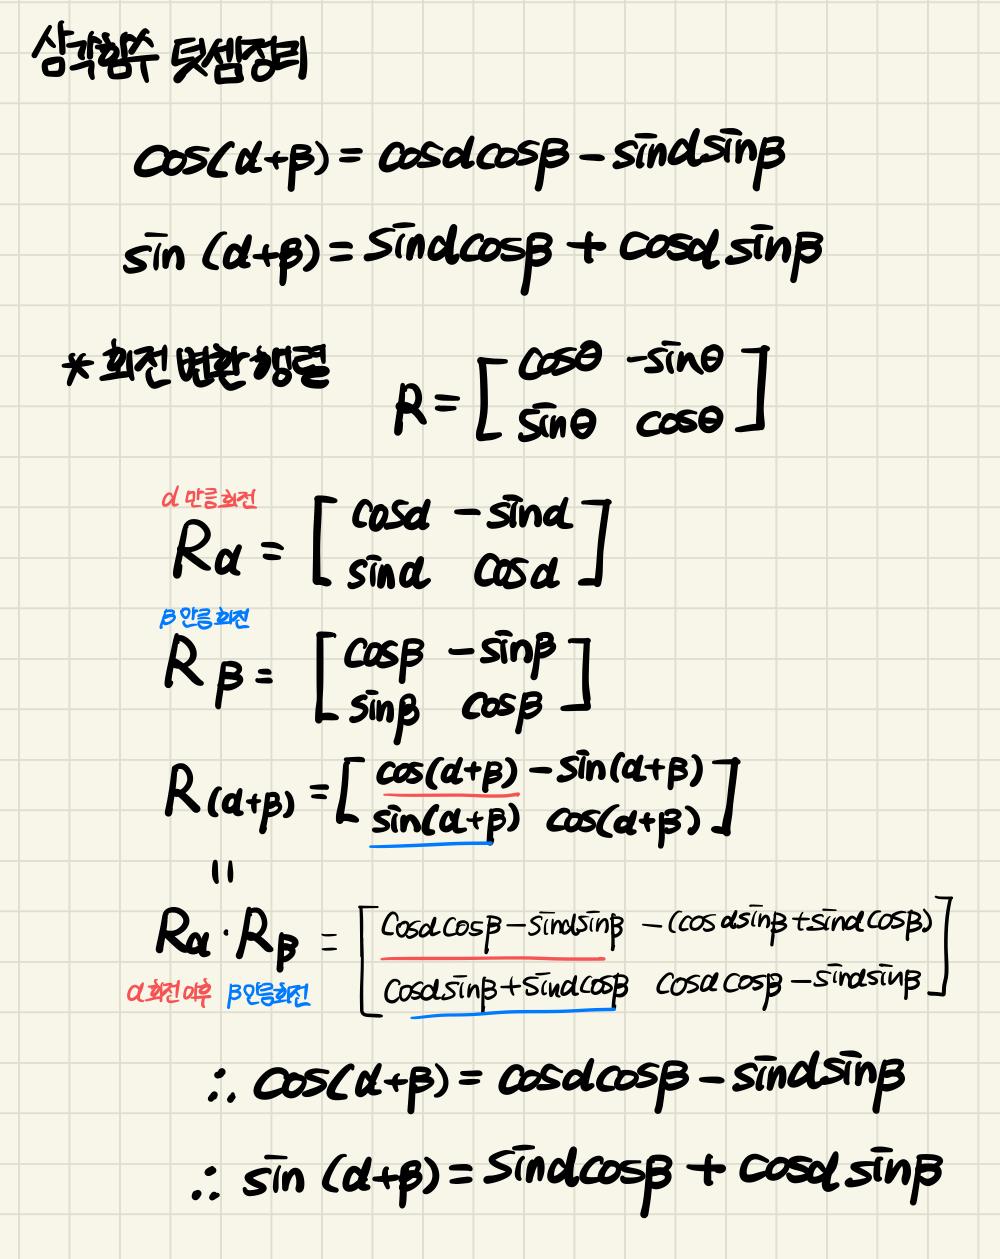 삼각함수 덧셈정리
cos(α+β) = cosαcosβ - sinαsinβ
sin (α+β) = sinαcosβ + cosαsinβ
* 회전변환행렬
R = [ cosθ -sinθ
sinθ cosθ ]
α만큼회전
Rα = [ cosα -sinα
sinα cosα ]
β만큼회전
Rβ = [ cosβ -sinβ
sinβ cosβ ]
R(α+β) = [ cos(α+β) -sin(α+β)
sin(α+β) cos(α+β) ]
=
Rα · Rβ = [ cosαcosβ-sinαsinβ -(cosαsinβ+sinαcosβ)
cosαsinβ+sinαcosβ cosαcosβ-sinαsinβ ]
α회전이후 β만큼회전
∴ cos(α+β) = cosαcosβ - sinαsinβ
∴ sin (α+β) = sinαcosβ + cosαsinβ